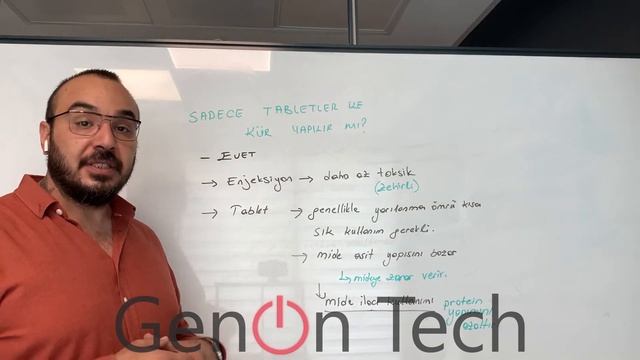 SADECE TABLETLER İLE
KÜR YAPILIR MI?
- EVET
→ Enjeksiyon → daha az toksik
(zehirli)
→ Tablet → genellikle yarılanma ömrü kısa
sık kullanım gerekli.
→ mide asit yapısını bozar
↳ mideye zarar verir.
↓ mide ilacı kullanımı protein
yapımını
azaltır
GenOn Tech